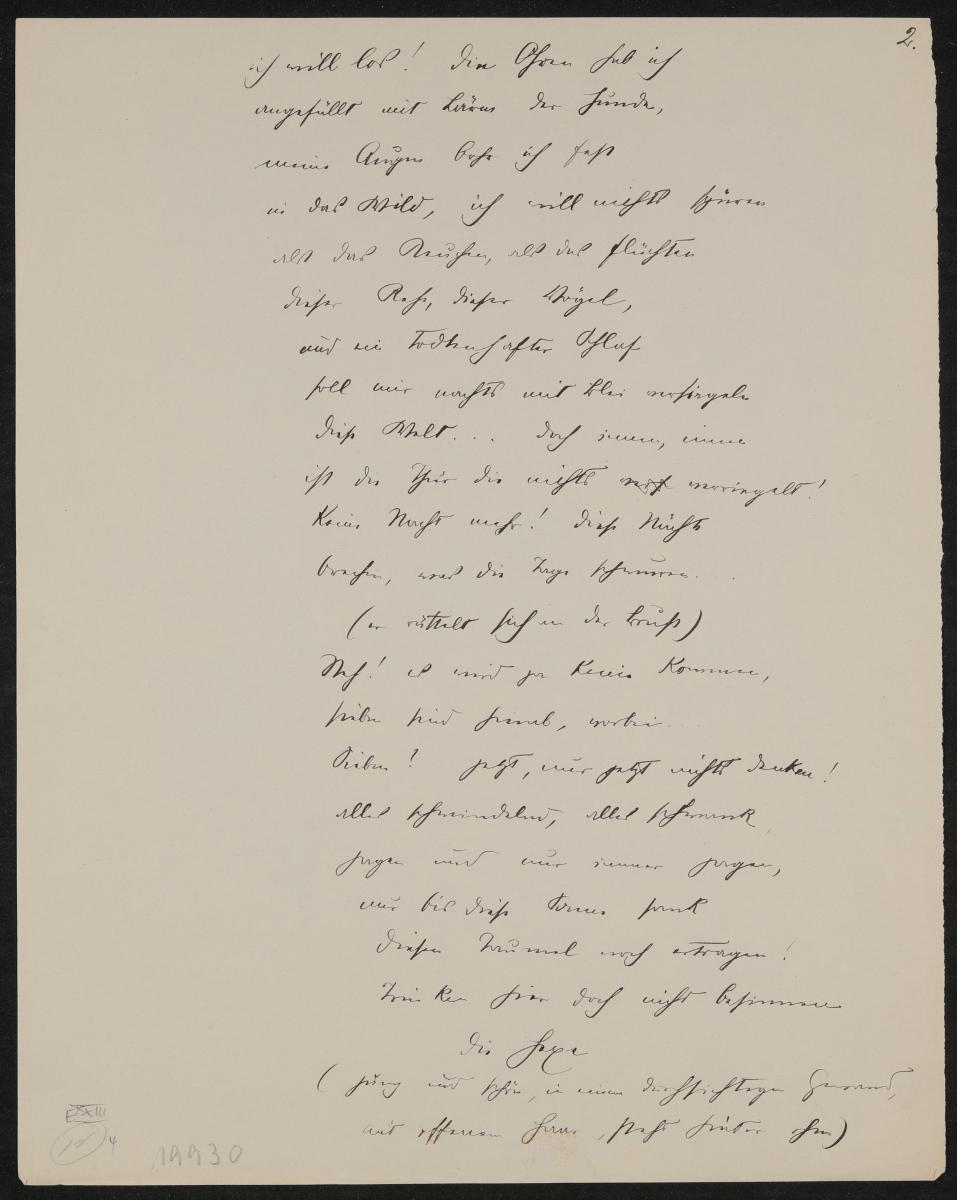 2.
ich will los! Die Ohren hab ich
angefüllt mit Lärm der Hunde,
meine Augen bohr ich fest
in das Wild, ich will nichts spüren
als das Keuchen, als das Flüchten
dieser Rehe, dieser Vögel,
und ein todtenhafter Schlaf
soll mir nachts mit Blei versiegeln
diese Welt... doch innen, innen
ist die Thür die nichts verriegelt!
Keine Nacht mehr! Diese Nächte
brechen, was die Tage schwuren...
(er rüttelt sich an der Brust)
Weh! es wird ja keine kommen,
sieben sind hinab, vorbei...
Sieben? jetzt, nur jetzt nichts denken!
alles schwindelnd, alles schwank
jagen und nur immer jagen,
nur bis diese Sonne sank
diesen Taumel noch ertragen!
Trinken hier doch nicht besinnen
Die Hexe
(jung und schön, in einem durchsichtigen Gewand,
mit offenem Haar, steht hinter ihm)
XXIII
4
19930